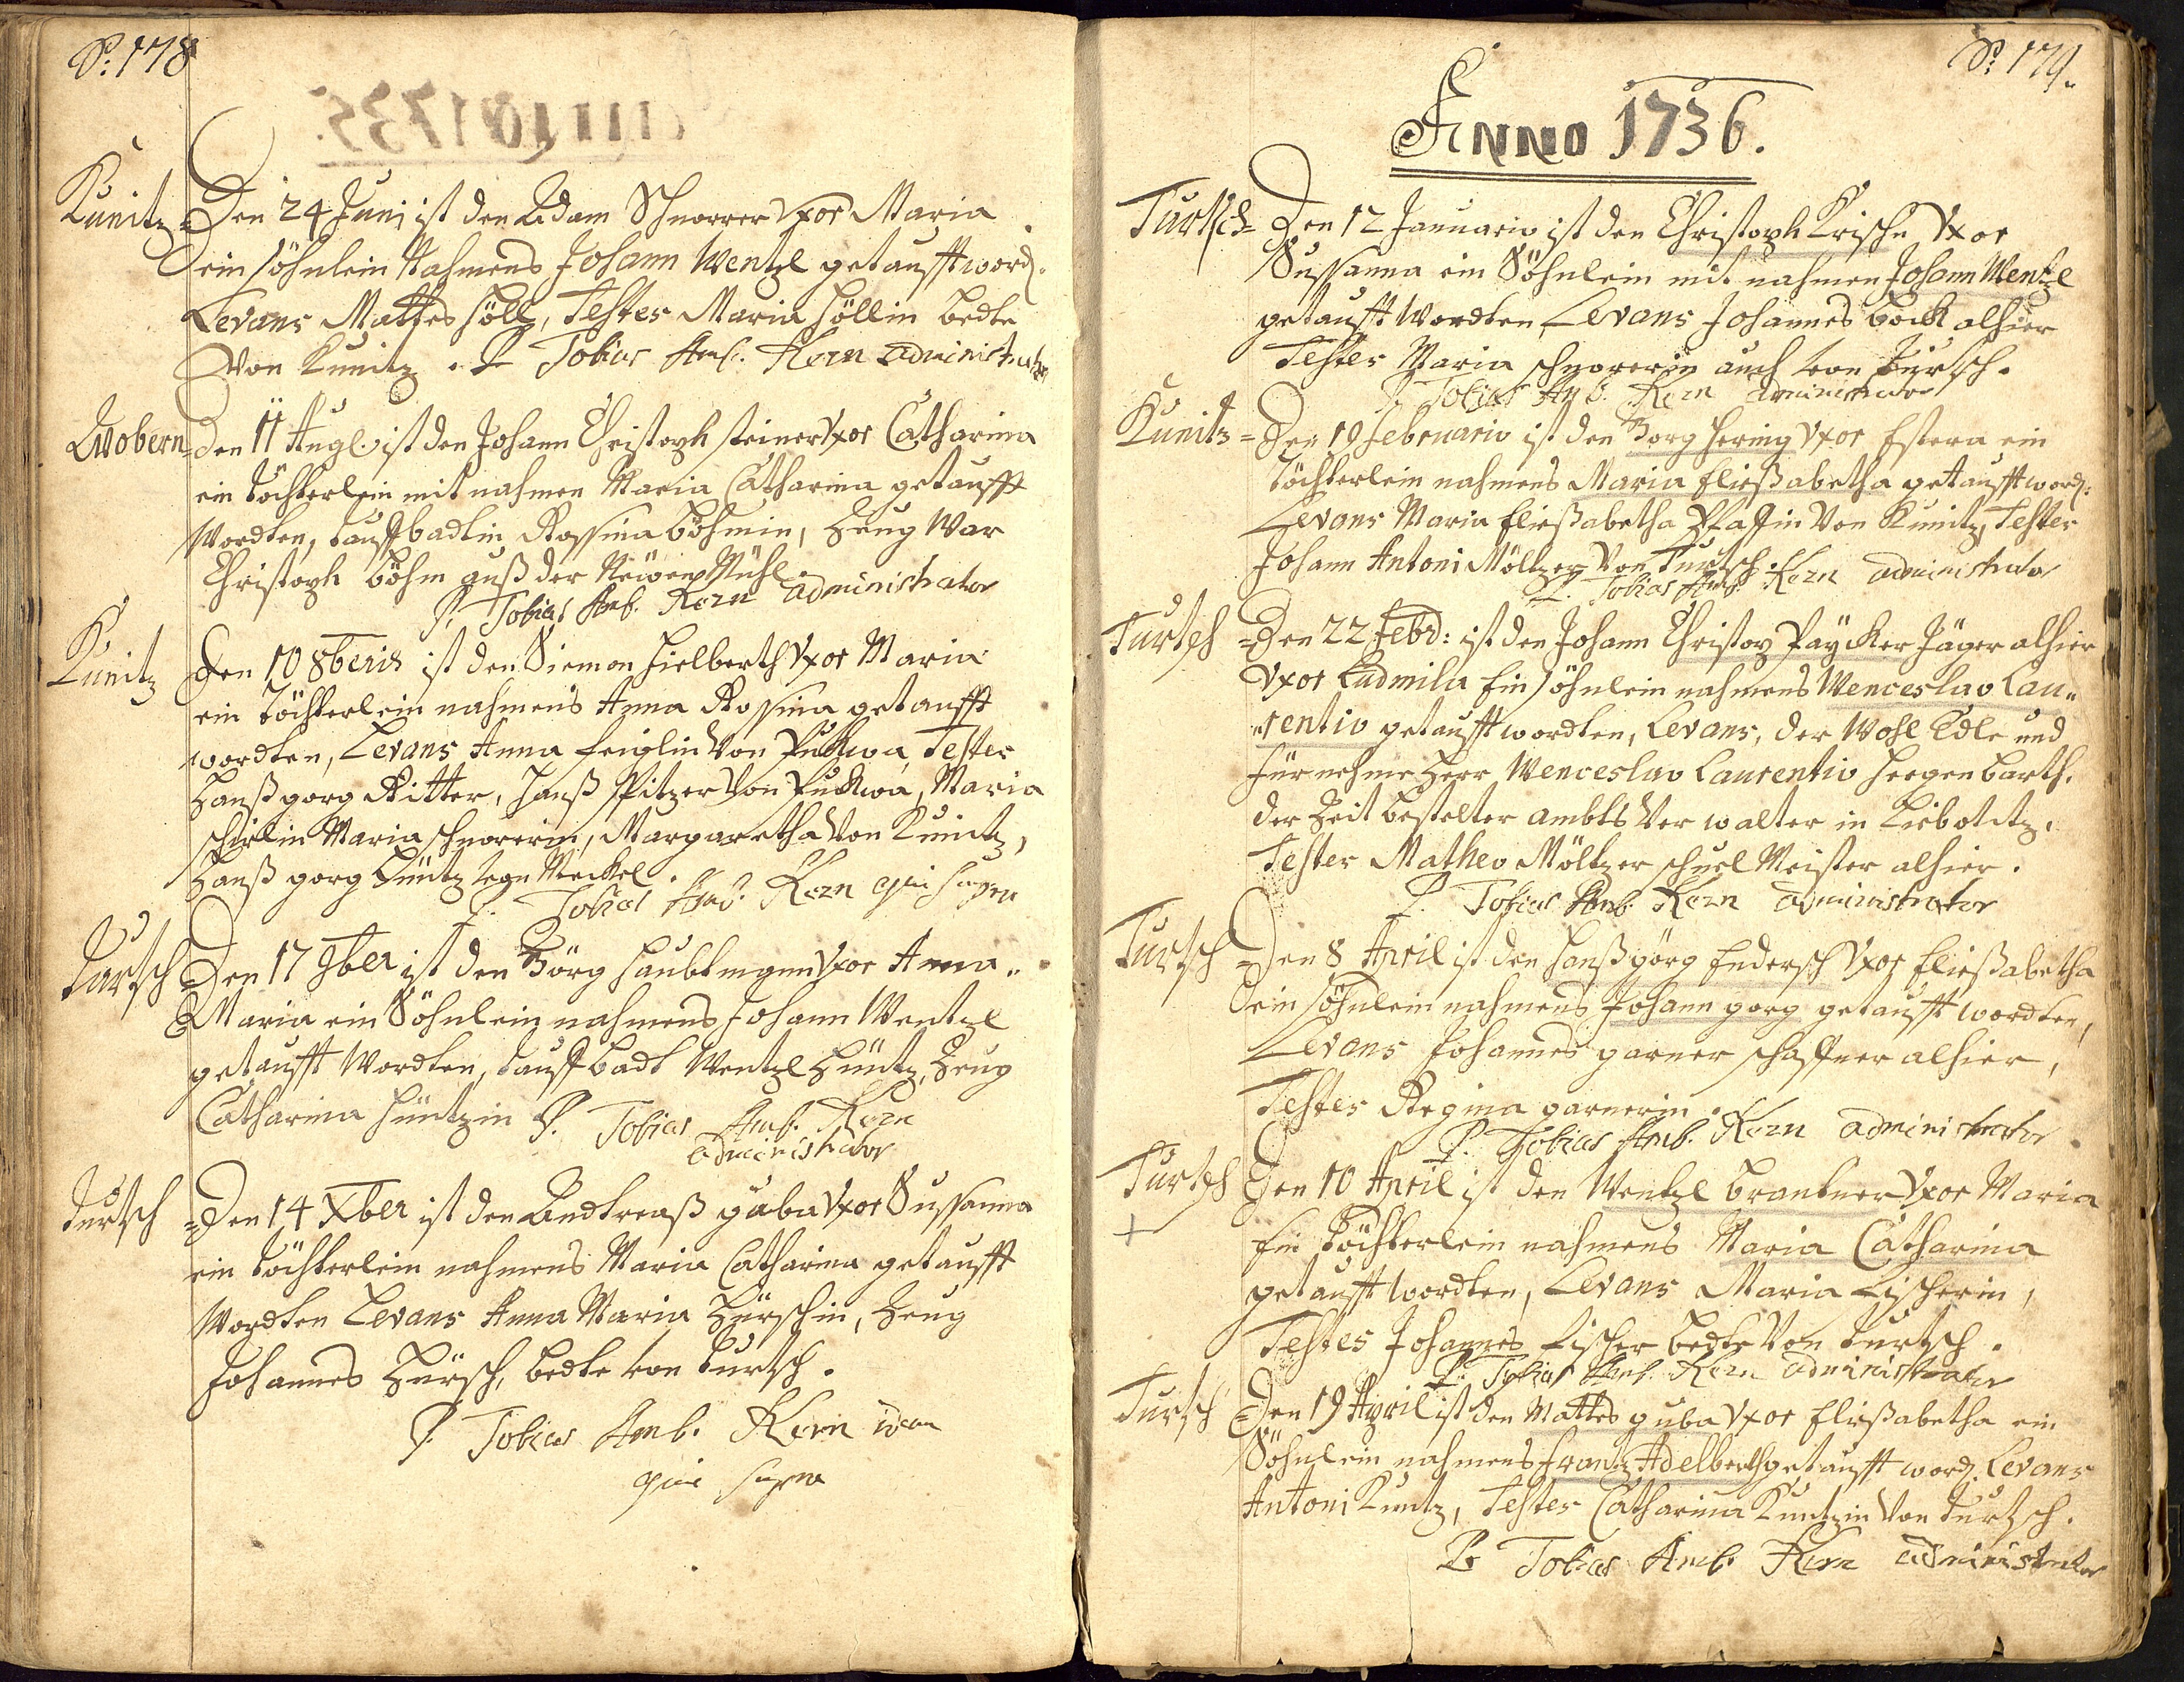 P: 178
Kunitz
Den 24 Juni ist den Adam Schnorrer Vxor Maria
ein söhnlein Nahmens Johann Wentzl getaufft word.
Levans Mattes Höll, Testes Maria Höllin bedte
Von Kunitz. P. Tobias Amb. Kern administrator
Wobern
Den 11 Augl ist den Johann Christoph Steiner Vxor Catharina
ein töchterlein mit nahmen Maria Catharina getaufft
Wordten, tauffbadtin Rossina Böhmin, Zeug War
Christoph Böhm auß der Neüwen Mühl.
P. Tobias Amb. Kern administrator
Kunitz
Den 10 8beris ist den Siemon Hielberth Vxor Maria
ein töchterlein nahmens Anna Rossina getaufft
wordten, Levans Anna Feiglin Von Pukwa, Testes
Hanß gorg Ritter, Hanß Pitzer Von Pukwa, Maria
Maria schnorerin, Margaretha Von Kunitz,
Hanß gorg
P. Tobias Amb. Kern qui supra
Turtsch
Den 17 9ber ist den Görg Haubtmann Vxor Anna
Maria ein Söhnlein nahmens Johann Wentzl
getaufft Wordten, tauffbadt Wentzl Hüntz, Zeug
Catharina Hüntzin P. Tobias Amb. Kern
administrator
turtsch
Den 14 Xber ist den Andreaß guba Vxor Sussanna
ein töchterlein nahmens Maria Catharina getaufft
Wordten Levans Anna Maria Hürschin, Zeug
Johannes Hürsch, bedte von turtsch.
P. Tobias Amb. Kern idem
qui supra
P: 179.
Anno 1736.
Turtsch
Den 12 Januario ist den Christoph Krische Vxor
Sussanna ein Söhnlein mit nahmen Johann Wentzl
getaufft Wordten, Levans Johannes Bock alhier
Testes Maria schnorerin auch von turtsch.
P. Tobias Amb. Kern administrator
Kunitz
Den 19 Februario ist den Gorg Hering Vxor Estera ein
töchterlein nahmens Maria Eließabetha getaufft word:
Levans Maria Eließabetha Pfaffin Von Kunitz, Testes
Johann Antoni Möltzer Von Turtsch.
P. Tobias Amb. Kern administrator
Turtsch
Den 22 Febr: ist den Johann Christop Paycker Jäger alhier
Vxor Ludmila Ein söhnlein nahmens Wenceslao Lau„
„rentio getaufft wordten, Levans, der Wohl Edle und
fürnehme Herr, Wenceslao Laurentio Heegenbarth.
der Zeit bestelter ambts Verwalter in Liebotitz,
Testes Matheo Möltzer schuel Meister alhier.
P. Tobias Amb. Kern administrator
Turtsch
Den 8 April ist den Hanß görg Endersch Vxor Eließabetha
ein söhnlein nahmens Johann gorg getaufft wordten,
Levans Johannes garner schaffner alhier,
Testes Regina garnerin.
P. Tobias Amb. Kern administrator.
Turtsch
Den 10 April ist den Wentzl Brantner Vxor Maria
Ein töchterlein nahmens Maria Catharina
getaufft wordten, Levans Maria Lischerin,
Testes Johannes Lischer bedte Von turtsch.
P. Tobias Amb. Kern administrator
Tursch
Den 19 April ist den Mattes guba Vxor Eließabetha ein
Söhnlein nahmens Frantz Adelberth getaufft word. Levans
Antoni Kuntz, Testes Catharina Kuntzin Von turtsch.
P. Tobias Amb. Kern administrator